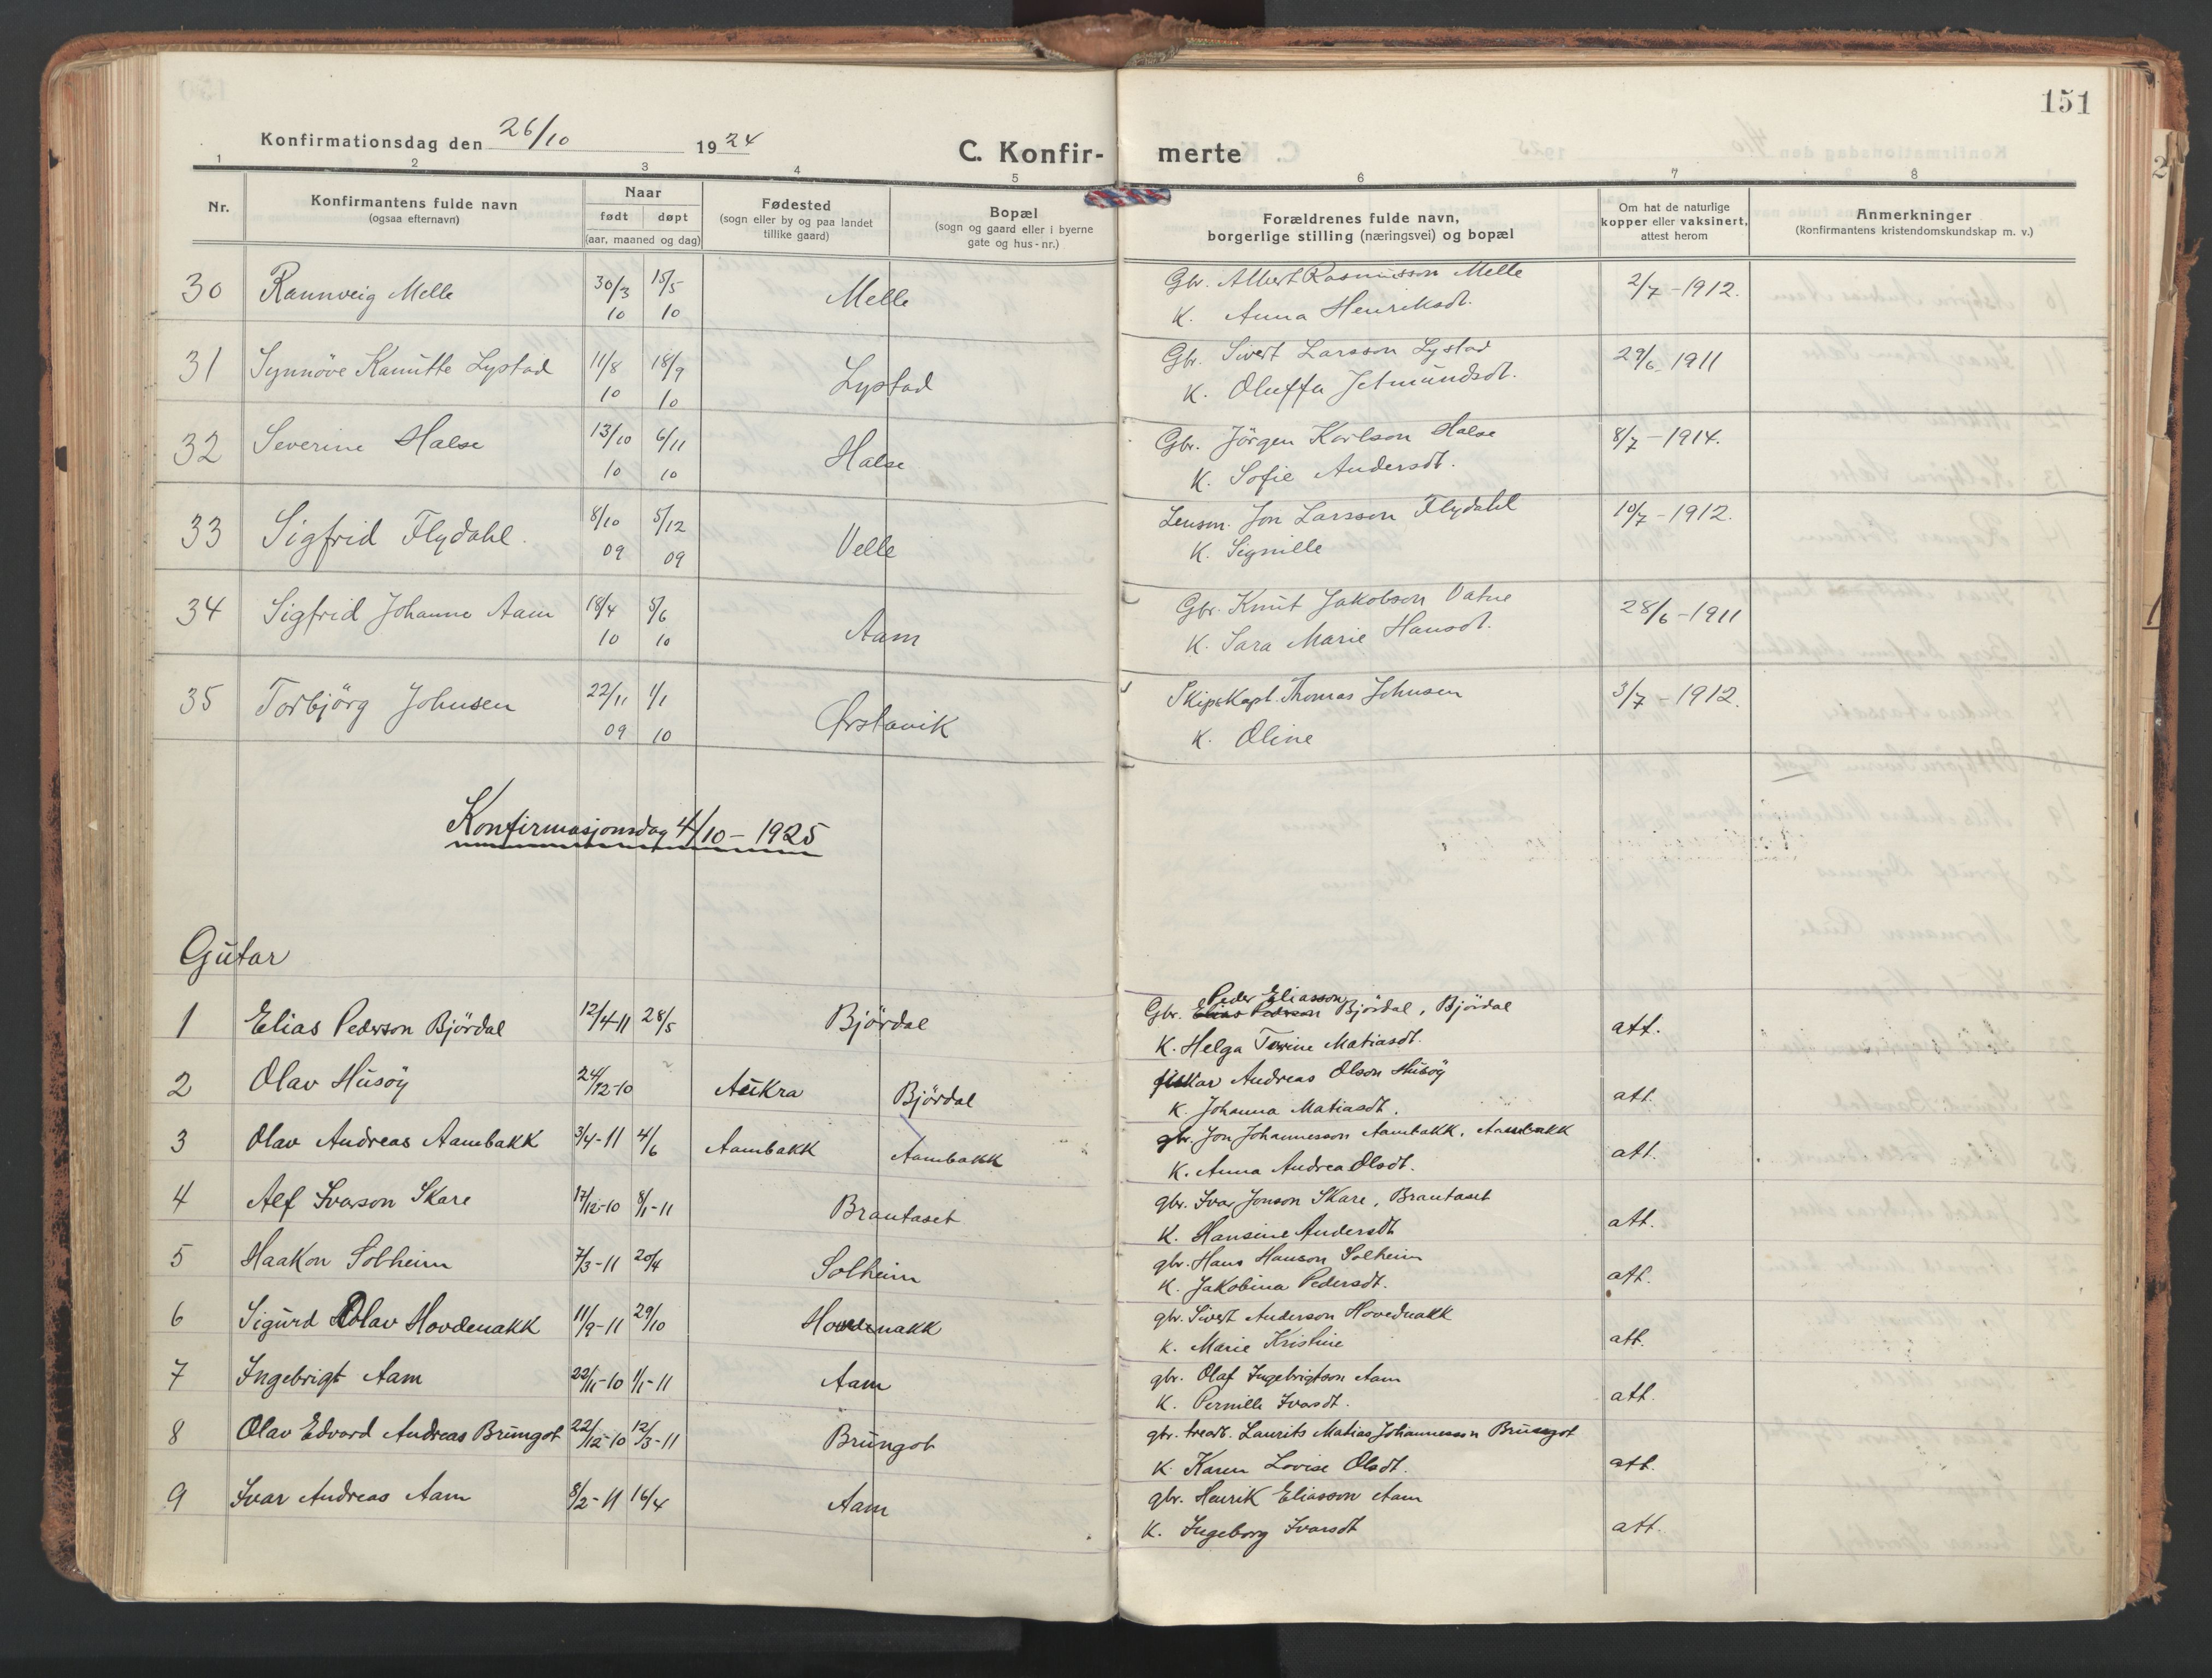 151
Konfirmationsdag den 26/10 1924
C. Konfir- merte
1 2 3 4 5 6 7 8
Nr.
Konfirmantens fulde navn
(ogsaa efternavn)
Naar
født døpt
(aar, maaned og dag)
Fødested
(sogn eller by og paa landet
tillike gaard)
Bopæl
(sogn og gaard eller i byerne
gate og hus-nr.)
Forældrenes fulde navn,
borgerlige stilling (næringsvei) og bopæl
Om hat de naturlige
kopper eller vaksinert,
attest herom
Anmerkninger
(Konfirmantens kristendomskundskap m. v.)
30 Rannveig Melle 30/3 15/5 Melle Gbr. Albert Rasmusson Melle 2/7 - 1912.
10 10 K. Anna Henriksdt.
31 Synnöve Kamitte Lystad 11/8 18/9 Lystad Gbr. Sivert Larsson Lystad 29/6 1911
10 10 K. Oluffa Jetmundsdt.
32 Severine Halse 13/10 6/11 Halse Gbr. Jörgen Karlson Halse 8/7 - 1914.
10 10 K. Sofie Andersdt.
33 Sigfrid Flydahl. 8/10 5/12 Velle Lensm. Jon Larsson Flydahl 10/7 - 1912.
09 09 K. Signille
34 Sigfrid Johanne Aam 18/4 5/6 Aam Gbr. Knut Jakobson Vatne 28/6 - 1911
10 10 K. Sara Marie Hansdt.
35 Torbjörg Johnsen 22/11 1/1 Ørstavik Skipskapt. Thomas Johnsen 3/7 - 1912.
09 10 K. Oline
Konfirmasjonsdag 4/10 - 1925
Gutar
Peder Eliasson
1 Elias Pederson Björdal 12/4-11 28/5 Björdal Gbr. Elias Pederson Björdal, Björdal att.
K. Helga Torine Matiasdt.
2 Olav Husöy 24/12-10 Aukra Björdal fiskar Andreas Olson Husöy att.
K. Johanna Matiasdt.
3 Olav Andreas Aambakk 3/4-11 4/6 Aambakk Aambakk gbr. Jon Johannesson Aambakk, Aambakk att.
K. Anna Andrea Olsdt.
4 Alf Ivarson Skare 17/12-10 8/1-11 Brautaset gbr. Ivar Jonson Skare, Brautaset att.
K. Hansine Andersdt
5 Haakon Solheim 7/3-11 20/4 Solheim gbr. Hans Hanson Solheim att.
K. Jakobina Pedersdt.
6 Sigurd Olav Hovdenakk 11/9-11 29/10 Hovdenakk gbr. Sivert Anderson Hovednakk att.
K. Marie Kristine
7 Ingebrigt Aam 22/11-10 1/1-11 Aam gbr. Olaf Ingebrigtson Aam att.
K. Pernille Ivarsdt.
8 Olav Edvard Andreas Brungot 22/12-10 12/3-11 Brungot gbr. Laurits Matias Johannesson Brungot att.
K. Karen Lovise Olsdt.
9 Ivar Andreas Aam 8/2-11 16/4 Aam gbr. Henrik Eliasson Aam att.
K. Ingeborg Ivarsdt